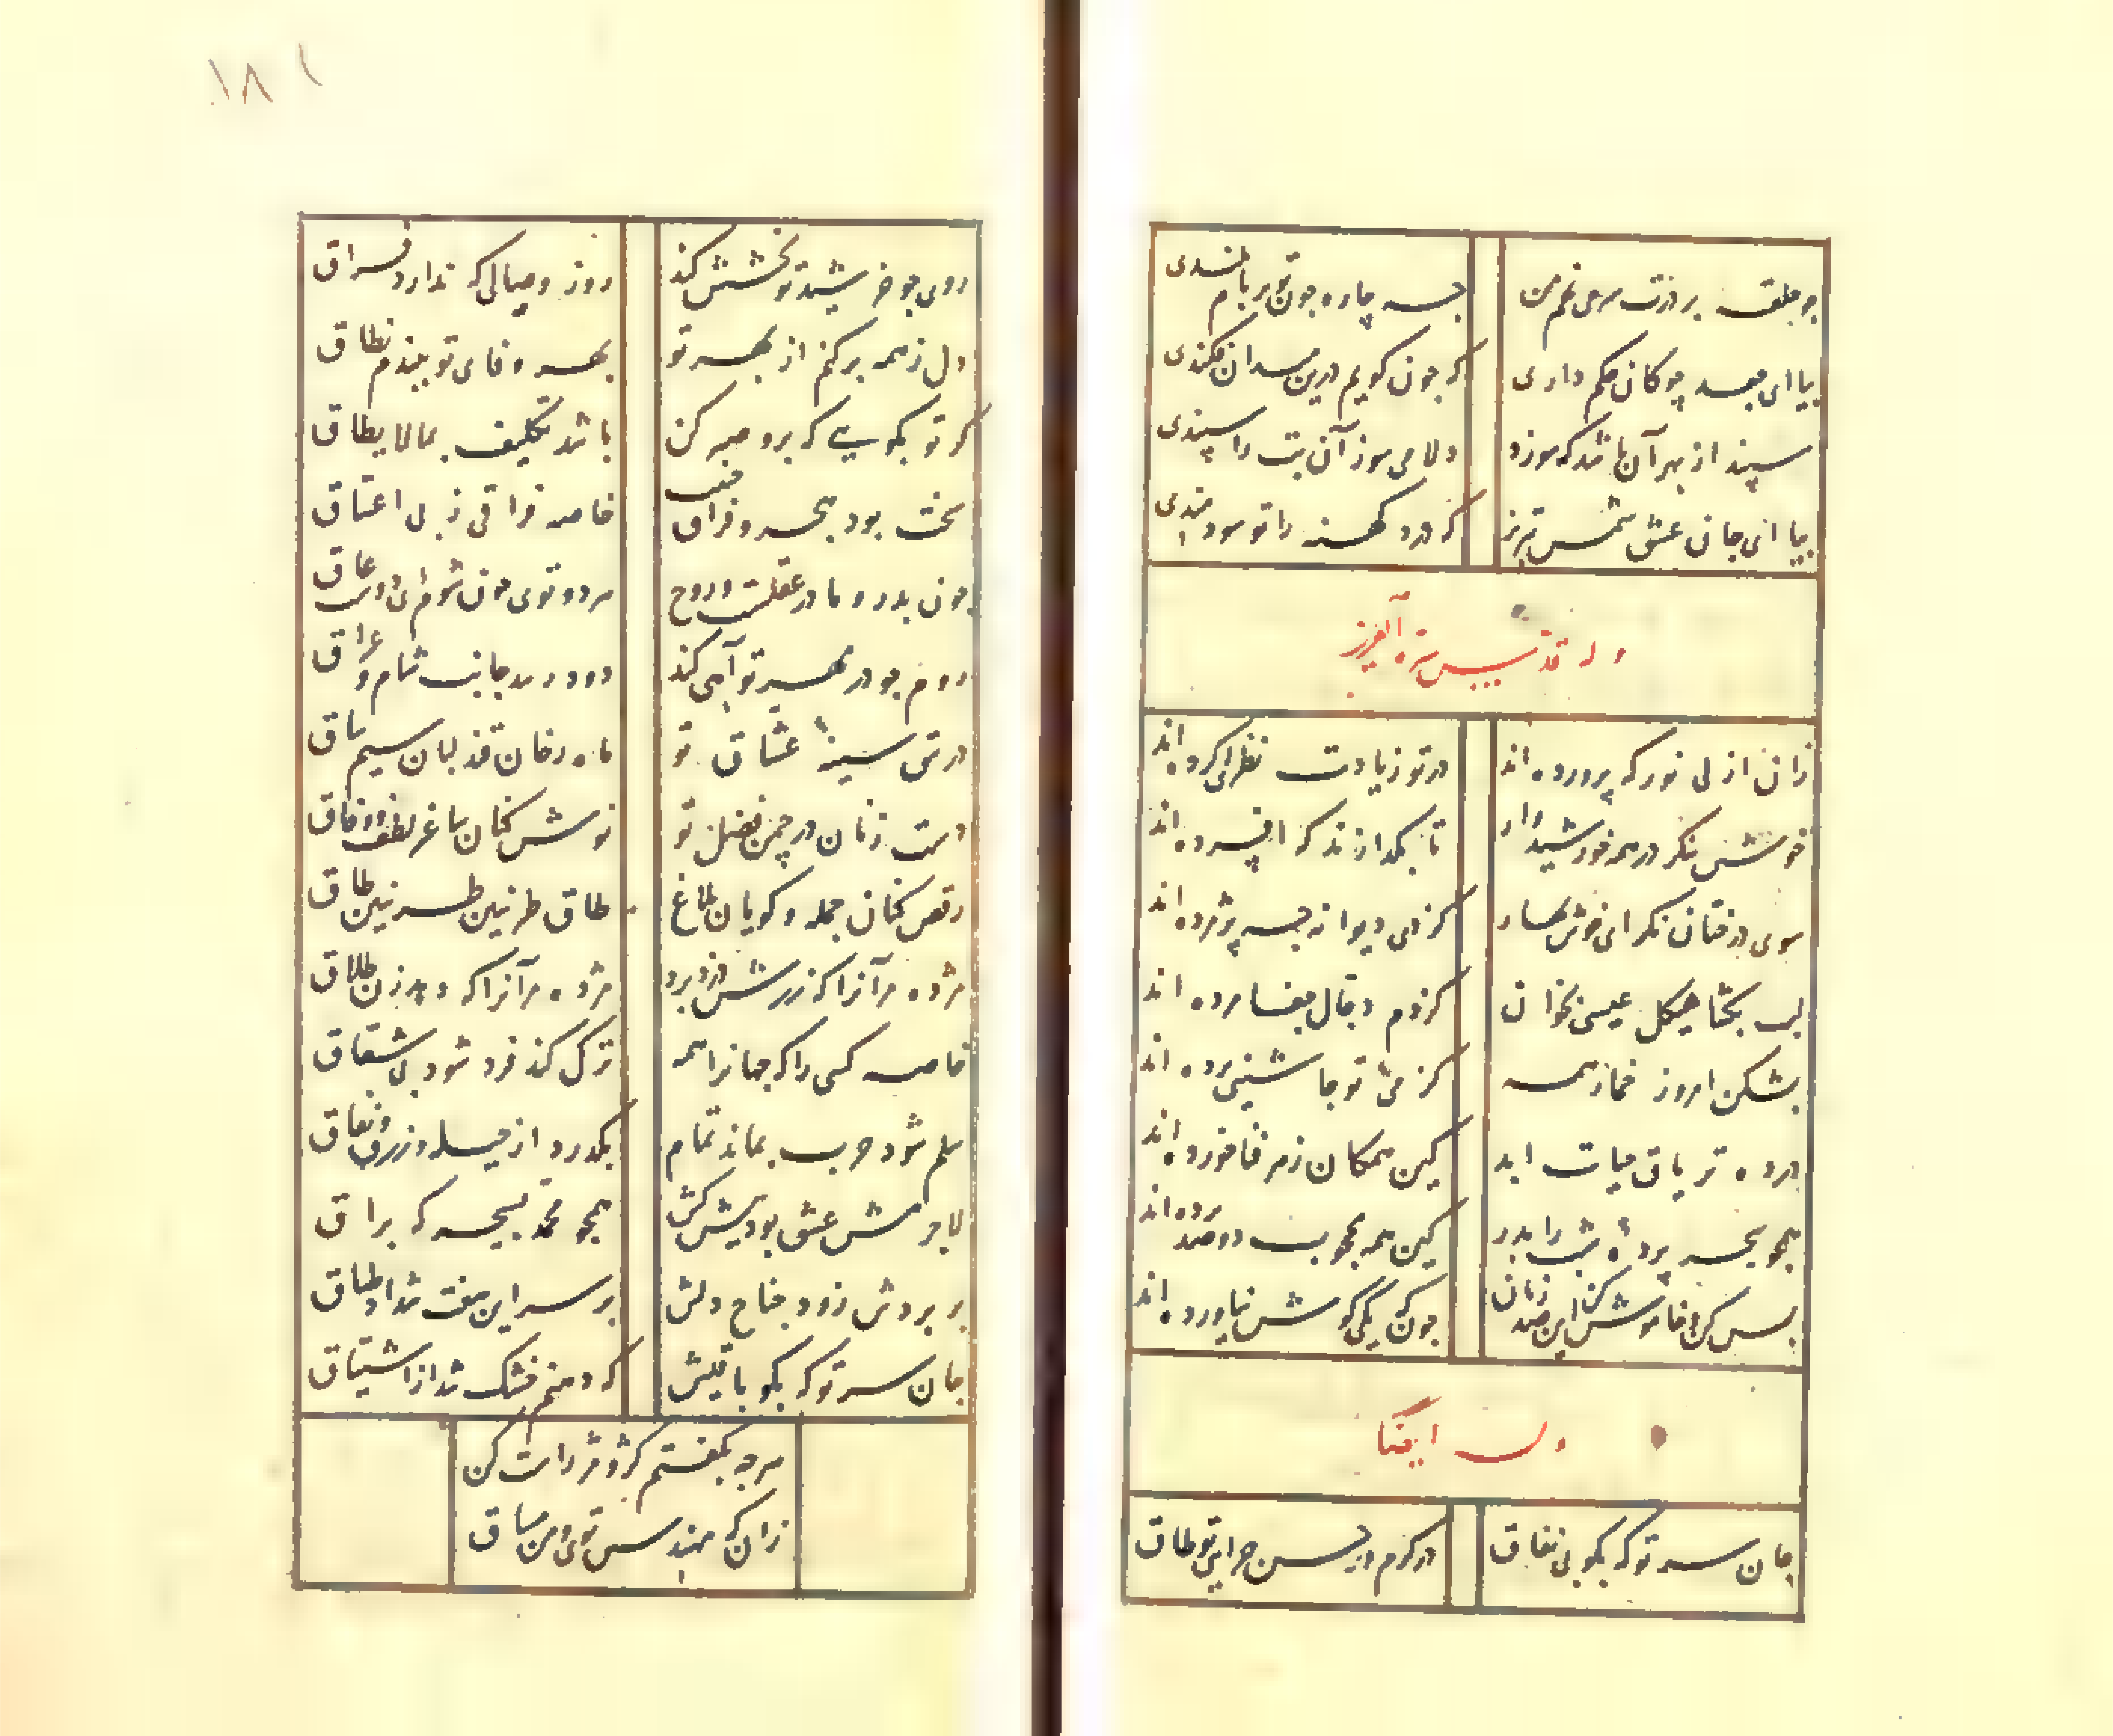 چو حلقه بر درت سر می‌زنم من
چه چاره چون تو بر بام بلندی
بیا ای جعد چوکان حکم داری
که چون کویم درین میدان فکندی
سپند از بهر آن باشد که سوزد
دلا می سوز آن بت را سپندی
بیا ای جان عشق شمس تبریز
که درد کهنه را تو سودمندی
وله قدس سره العزیز
زان ازلی نور که پرورده اند
در تو زیادت نظری کرده اند
خوش بنکر در همه خورشیدوار
تا بکدازند که افسرده اند
سوی درختان نکر ای خوش بهار
کز دی دیوانه چه پژمرده اند
لب بکشا هیکل عیسی بخوان
کز دم دجال جفا مرده اند
بشکن امروز خمار همه
کز می تو چاشنیی برده اند
درده تریاق حیات ابد
کین همکان زهر فنا خورده اند
همچو سحر پرده شب را بدر
کین همه محجوب دو صد پرده اند
بس کن و خاموش کن این صد زبان
چون که یکی کوش نیاورده اند
وله ایضا
جان سر تو که بکو بی نفاق
در کرم و حسن چرایی تو طاق
۱۸۱
روی چو خرشید تو بخشش کند
روز وصالی که ندارد فراق
دل ز همه برکنم از بهر تو
بهر وفای تو ببندم نطاق
کر تو بکویی که برو صبر کن
باشد تکلیف بما لا یطاق
سخت بود هجر و فراق حبیب
خاصه فراقی ز پی اعتناق
چون پدر و مادر عقلست و روح
هر دو توی چون شوم ای دوست عاق
روم چو در مهر تو آهی کند
دود رسد جانب شام و عراق
در تتق سینه عشاق تو
ماه رخان قند لبان سیم ساق
دست زنان در چمن فضل تو
نوش کنان ساغر لطف و وفاق
رقص کنان جمله و کویان طاغ
طاق طرنبین طرنبین طاق
مژده مر آنرا که زرش دزد برد
مژده مر آنرا که دهد زن طلاق
خاصه کسی را که جهانرا همه
ترک کند فرد شود بی شقاق
سلم شود حرب بماند تمام
بکذرد از حیله و زرق و نفاق
لاجرمش عشق بود پیش کش
همچو محمد بسحر که براق
بر بردش زود جناح دلش
بر سر این هفت شداد طباق
جان سر تو که بکو باقیش
که دهنم خشک شد از اشتیاق
هر چه بکفتم کژ و مژ راست کن
زان که مهندس توی و من مساق